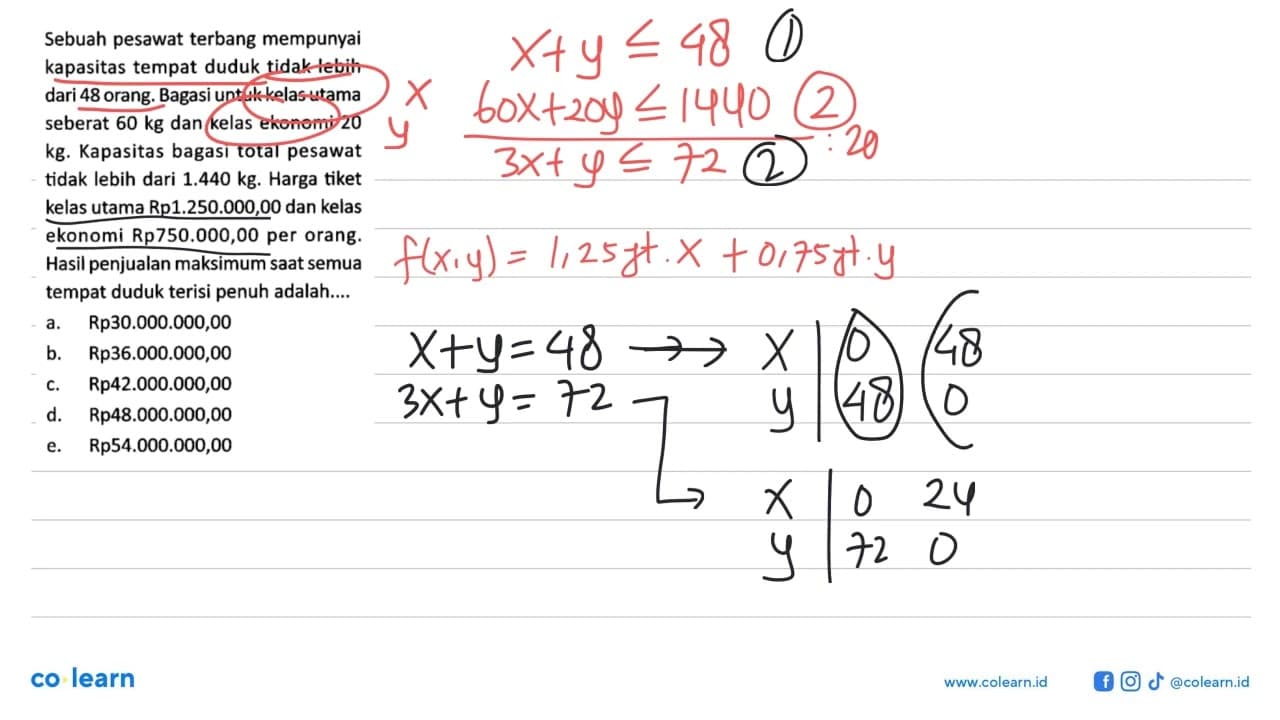 Sebuah pesawat terbang mempunyai
kapasitas tempat duduk tidak lebih
dari 48 orang. Bagasi untuk kelas utama
seberat 60 kg dan kelas ekonomi 20
kg. Kapasitas bagasi total pesawat
tidak lebih dari 1.440 kg. Harga tiket
kelas utama Rp1.250.000,00 dan kelas
ekonomi Rp750.000,00 per orang.
Hasil penjualan maksimum saat semua
tempat duduk terisi penuh adalah....
a. Rp30.000.000,00
b. Rp36.000.000,00
c. Rp42.000.000,00
d. Rp48.000.000,00
e. Rp54.000.000,00
x
y
x+y ≤ 48 ①
60x+20y ≤ 1440 ②
: 20
3x+y ≤ 72 ②
f(x,y) = 1,25jt.x + 0,75jt.y
x+y=48 →→ x | 0 48
3x+y=72 y | 48 0
→ x | 0 24
y | 72 0
co learn
www.colearn.id
@colearn.id